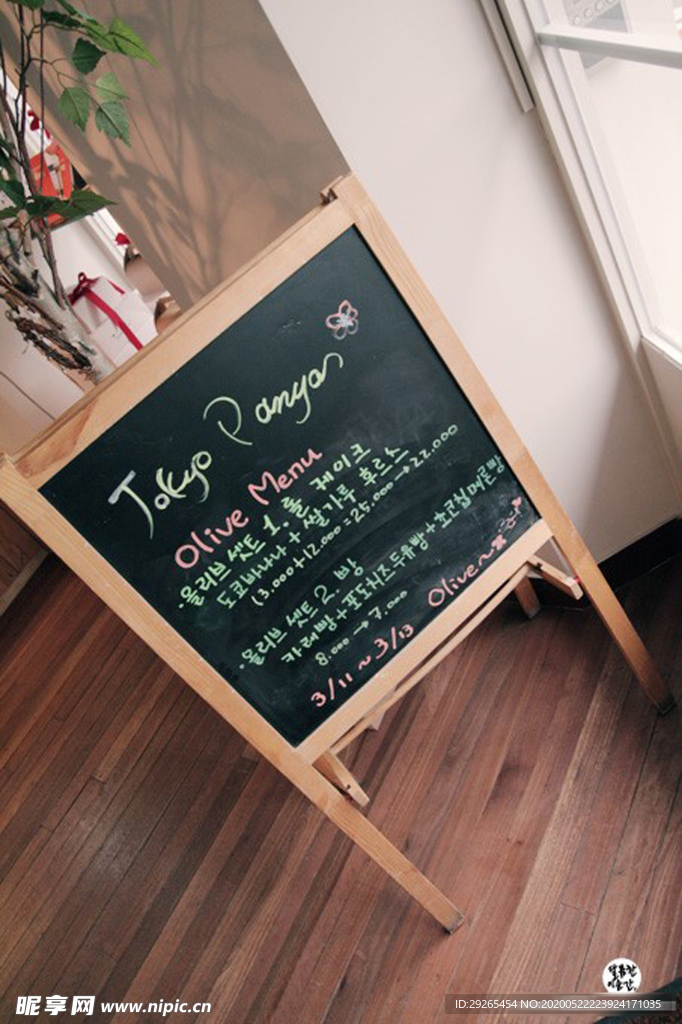 Tokyo Panya
Olive Menu
·올리브 셋트 1. 롤 케이크
도쿄바나나 + 쌀가루 후르츠
13.000+12.000=25.000→22.000
·올리브 셋트 2. 빵
카레빵+포도치즈두유빵+초코칩메론빵
8.000→7.000
3/11~3/13 Olive~
昵享网 www.nipic.cn
ID:29265454 NO:20200522223924171035